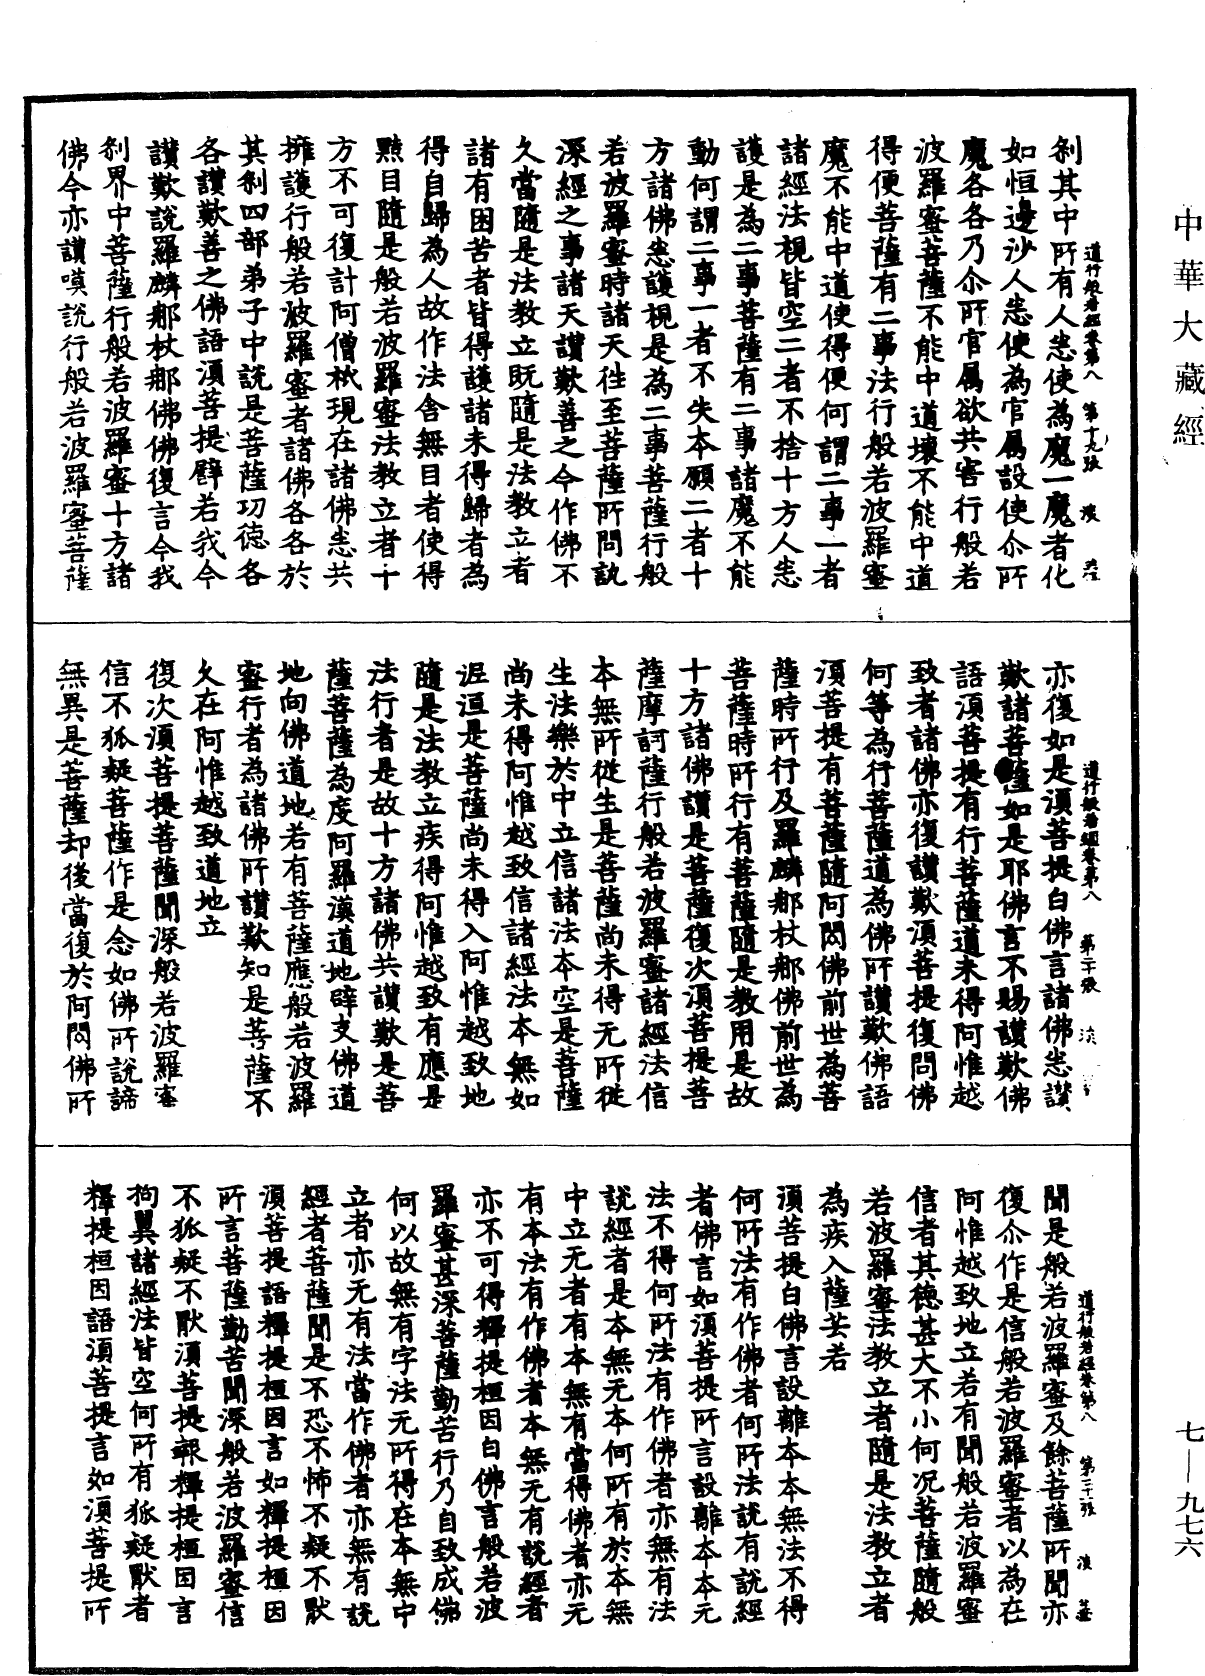 中華大藏經
七—九七六
道行般若經卷第八　第十九張
刹其中所有人悉使為魔一魔者化
如恒邊沙人悉使為官属設使尒所
魔各各乃尒所官属欲共害行般若
波羅蜜菩薩不能中道壞不能中道
得便菩薩有二事法行般若波羅蜜
魔不能中道使得便何謂二事一者
諸經法視皆空二者不捨十方人悉
護是為二事菩薩有二事諸魔不能
動何謂二事一者不失本願二者十
方諸佛悉護視是為二事菩薩行般
若波羅蜜時諸天往至菩薩所問訊
深經之事諸天讃歎善之今作佛不
久當隨是法教立既隨是法教立者
諸有困苦者皆得護諸未得歸者為
得自歸為人故作法舍無目者使得
㸃目隨是般若波羅蜜法教立者十
方不可復計阿僧祇現在諸佛悉共
擁護行般若波羅蜜者諸佛各各於
其刹四部弟子中說是菩薩功德各
各讃歎善之佛語湏菩提譬若我今
讃歎說羅麟那杖那佛佛復言今我
刹界中菩薩行般若波羅蜜十方諸
佛今亦讃嘆說行般若波羅蜜菩薩
道行般若經卷第八　第二十張
亦復如是湏菩提白佛言諸佛悉讃
歎諸菩薩如是耶佛言不賜讃歎佛
語湏菩提有行菩薩道未得阿惟越
致者諸佛亦復讃歎湏菩提復問佛
何等為行菩薩道為佛所讃歎佛語
湏菩提有菩薩隨阿閦佛前世為菩
薩時所行及羅麟那杖那佛前世為
菩薩時所行有菩薩隨是教用是故
十方諸佛讃是菩薩復次湏菩提菩
薩摩訶薩行般若波羅蜜諸經法信
本無所從生是菩薩尚未得无所從
生法樂於中立信諸法本空是菩薩
尚未得阿惟越致信諸經法本無如
泥洹是菩薩尚未得入阿惟越致地
隨是法教立疾得阿惟越致有應是
法行者是故十方諸佛共讃歎是菩
薩菩薩為度阿羅漢道地辟支佛道
地向佛道地若有菩薩應般若波羅
蜜行者為諸佛所讃歎知是菩薩不
久在阿惟越致道地立
復次湏菩提菩薩聞深般若波羅蜜
信不狐疑菩薩作是念如佛所說諦
無異是菩薩却後當復於阿閦佛所
道行般若經卷第八　第二十一張
聞是般若波羅蜜及餘菩薩所聞亦
復尒作是信般若波羅蜜者以為在
阿惟越致地立若有聞般若波羅蜜
信者其德甚大不小何况菩薩隨般
若波羅蜜法教立者隨是法教立者
為疾入薩芸若
湏菩提白佛言設離本本無法不得
何所法有作佛者何所法說有說經
者佛言如湏菩提所言設離本本无
法不得何所法有作佛者亦無有法
說經者是本無无本何所有於本無
中立无者有本無有當得佛者亦无
有本法有作佛者本無无有說經者
亦不可得釋提桓因白佛言般若波
羅蜜甚深菩薩勤苦行乃自致成佛
何以故無有字法无所得在本無中
立者亦无有法當作佛者亦無有說
經者菩薩聞是不恐不怖不疑不猒
湏菩提語釋提桓因言如釋提桓因
所言菩薩勤苦聞深般若波羅蜜信
不狐疑不猒湏菩提報釋提桓因言
拘翼諸經法皆空何所有狐疑猒者
釋提桓因語湏菩提言如湏菩提所